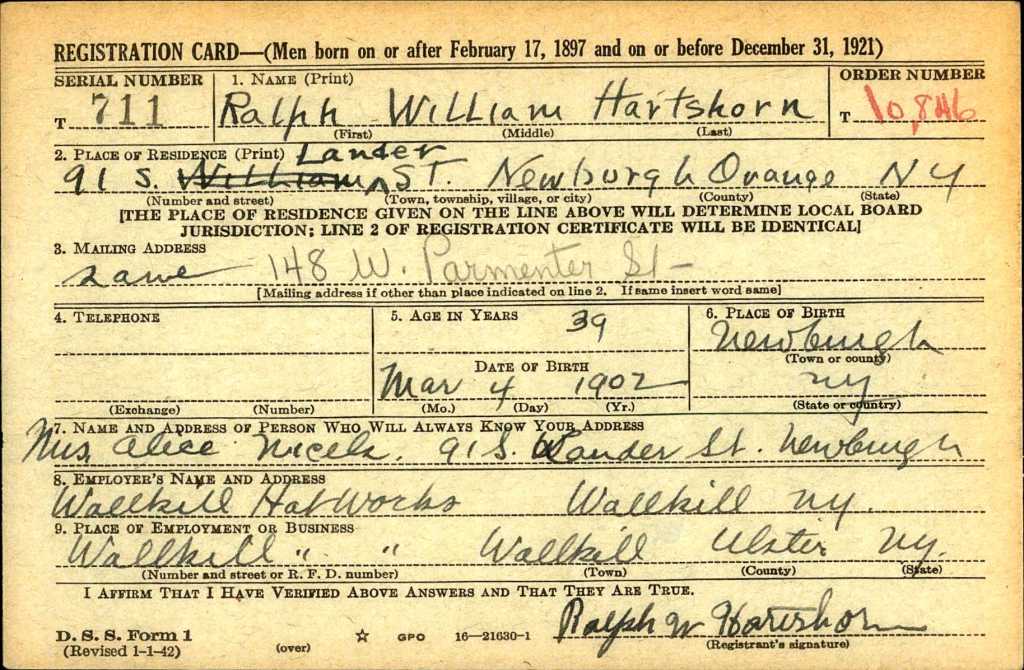 REGISTRATION CARD—(Men born on or after February 17, 1897 and on or before December 31, 1921)
SERIAL NUMBER 1. NAME (Print) ORDER NUMBER
T 711 Ralph William Hartshorn T 10,846
(First) (Middle) (Last)
2. PLACE OF RESIDENCE (Print) Lander
91 S. William ST. Newburgh Orange NY
(Number and street) (Town, township, village, or city) (County) (State)
[THE PLACE OF RESIDENCE GIVEN ON THE LINE ABOVE WILL DETERMINE LOCAL BOARD
JURISDICTION; LINE 2 OF REGISTRATION CERTIFICATE WILL BE IDENTICAL]
3. MAILING ADDRESS
same 148 W. Parmenter St-
[Mailing address if other than place indicated on line 2. If same insert word same]
4. TELEPHONE 5. AGE IN YEARS 39 6. PLACE OF BIRTH
Newburgh
(Town or county)
DATE OF BIRTH
Mar 4 1902 NY
(Exchange) (Number) (Mo.) (Day) (Yr.) (State or country)
7. NAME AND ADDRESS OF PERSON WHO WILL ALWAYS KNOW YOUR ADDRESS
Mrs. Alice 91 S. Lander St. Newburgh
8. EMPLOYER'S NAME AND ADDRESS
Wallkill Hat Works Wallkill NY.
9. PLACE OF EMPLOYMENT OR BUSINESS
Wallkill " " Wallkill Ulster NY.
(Number and street or R. F. D. number) (Town) (County) (State)
I AFFIRM THAT I HAVE VERIFIED ABOVE ANSWERS AND THAT THEY ARE TRUE.
Ralph W Hartshorn
D. S. S. Form 1 ☆ GPO 16—21630-1 (Registrant's signature)
(Revised 1-1-42) (over)